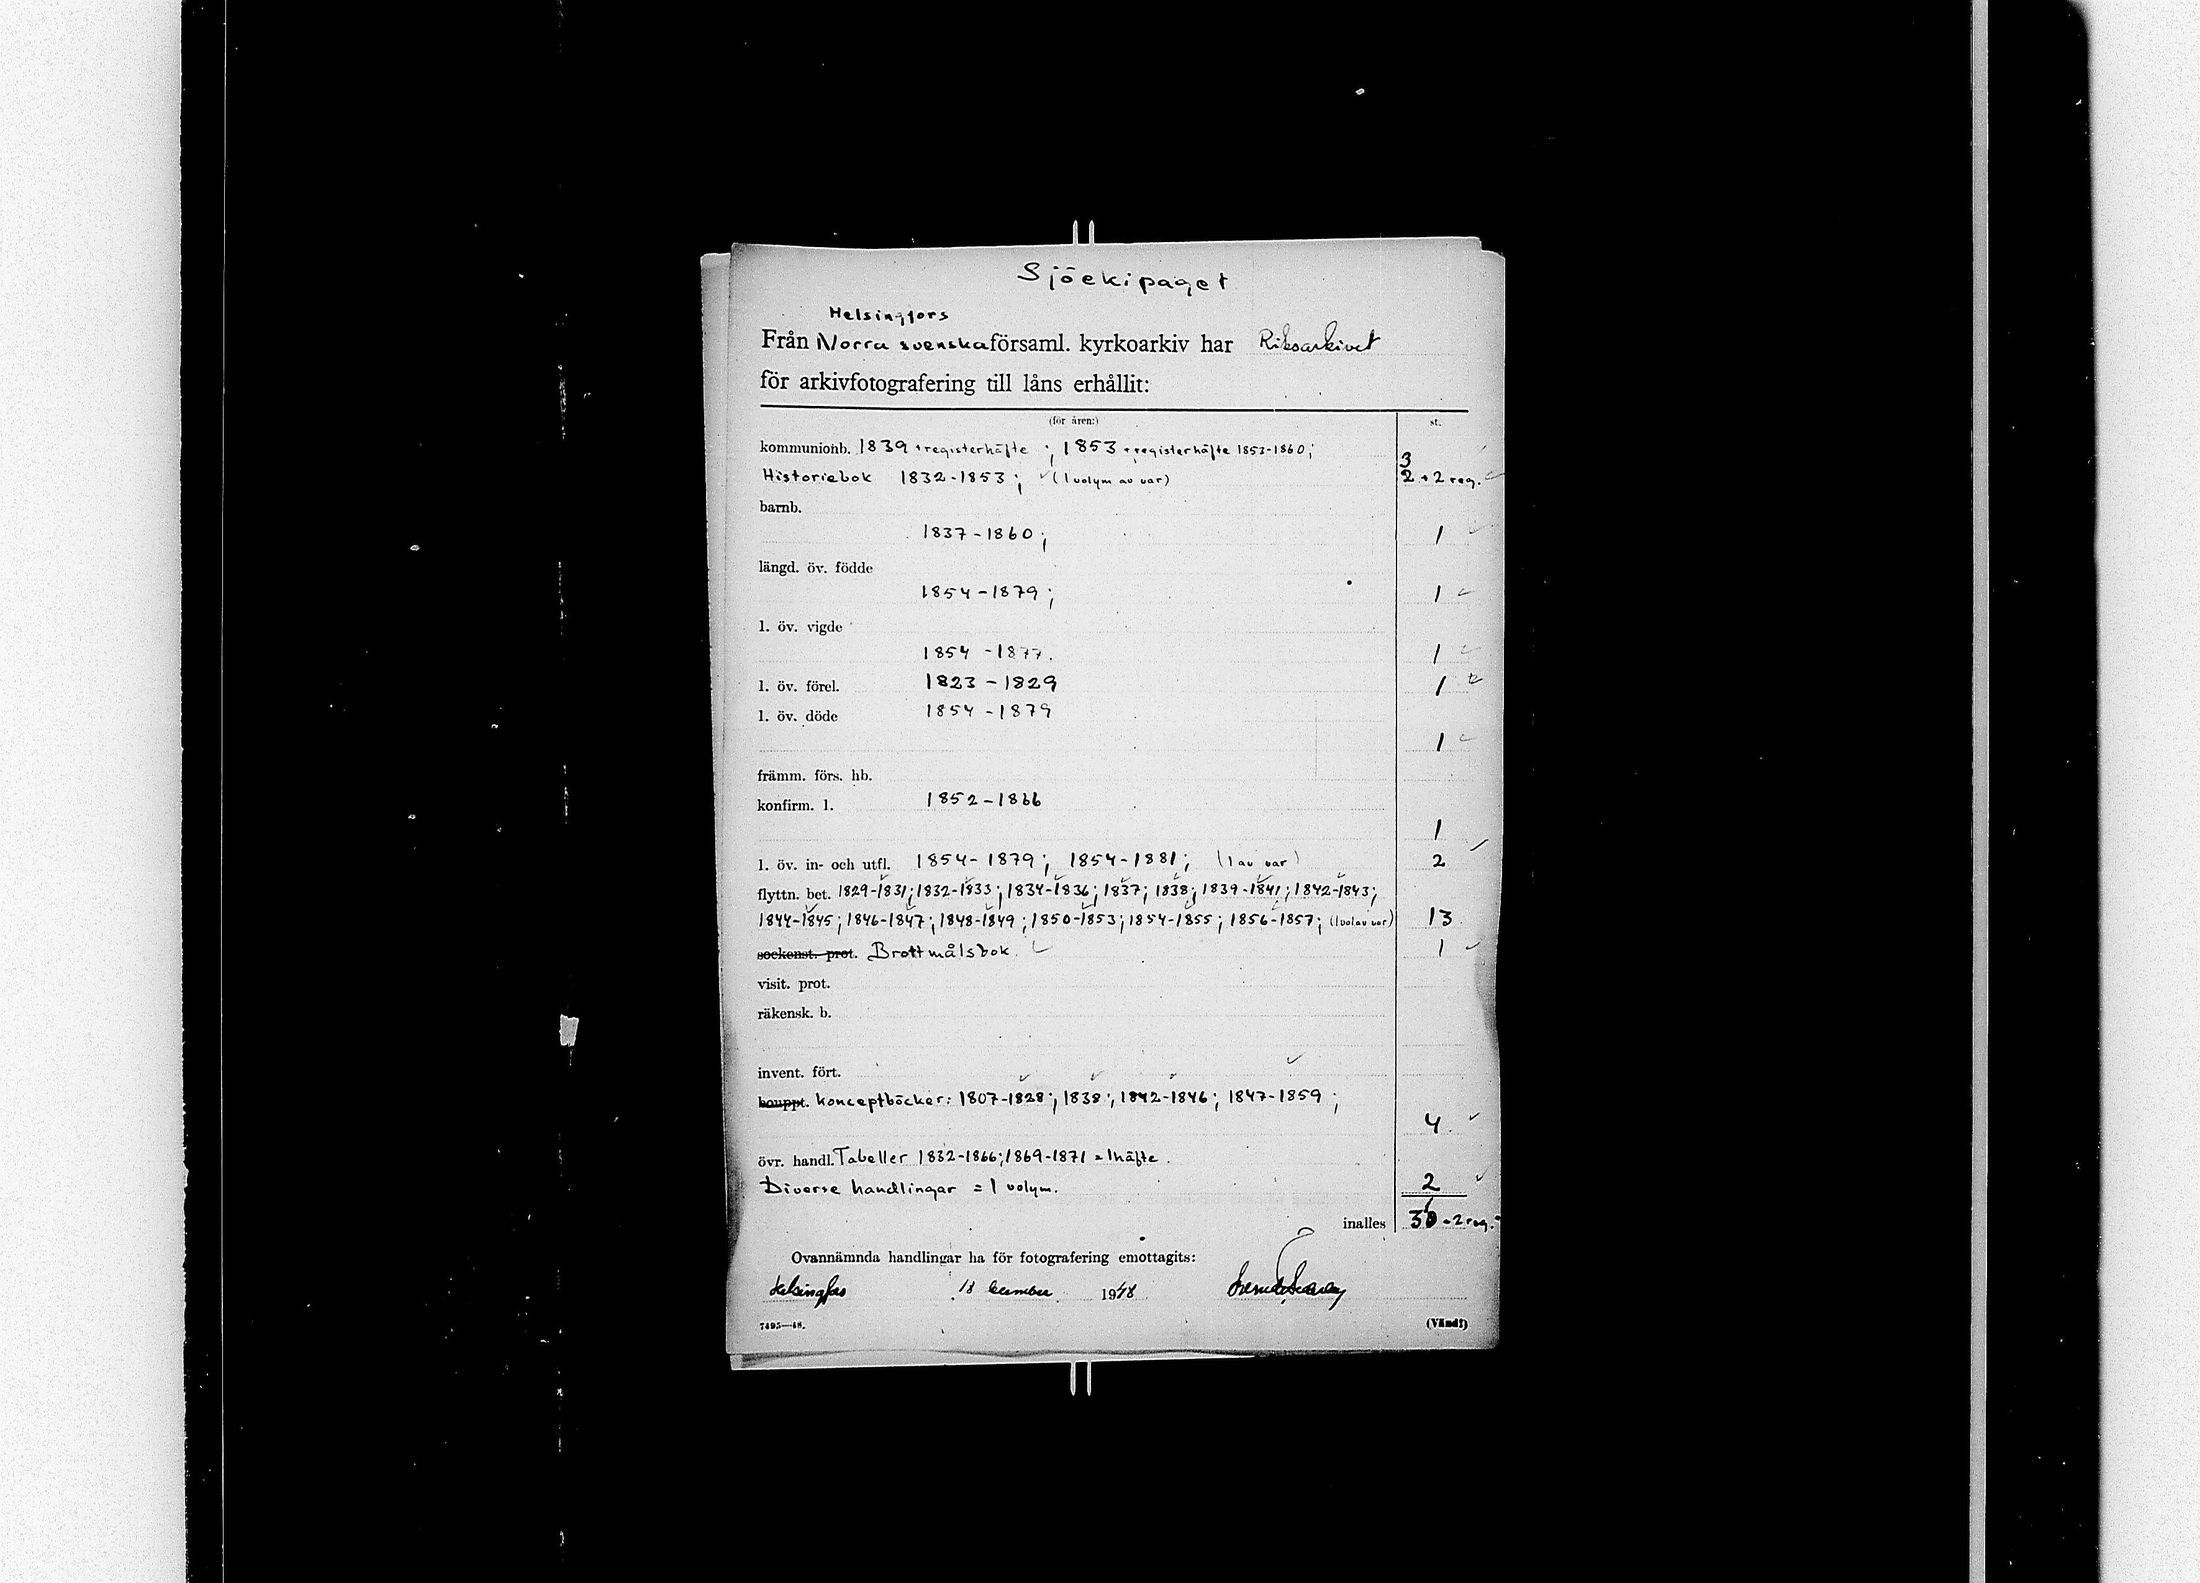 Sjöekipaget
Helsingfors
Från Norra svenska församl. kyrkoarkiv har Riksarkivet
för arkivfotografering till låns erhållit:
(för åren:) st.
kommunionb. 1839 + registerhäfte ; 1853 + registerhäfte 1853-1860; 3
Historiebok 1832-1853 ; (1 volym av var) 2 + 2 reg.
barnb.
1837-1860 ; 1
längd. öv. födde
1854-1879 ; 1
l. öv. vigde
1854 - 1877. 1
l. öv. förel. 1823 - 1829 1
l. öv. döde 1854 - 1879
1
främm. förs. hb.
konfirm. l. 1852 - 1866
1
l. öv. in- och utfl. 1854-1879 ; 1854-1881 ; (1 av var) 2
flyttn. bet. 1829-1831; 1832-1833; 1834-1836; 1837; 1838; 1839-1841; 1842-1843;
1844-1845; 1846-1847; 1848-1849; 1850-1853; 1854-1855; 1856-1857; (1 vol av var) 13
sockenst. prot. Brottmålsbok 1
visit. prot.
räkensk. b.
invent. fört.
bouppt. Konceptböcker: 1807-1828; 1838; 1842-1846; 1847-1859 ;
4
övr. handl. Tabeller 1832-1866; 1869-1871 = 1 häfte.
Diverse handlingar = 1 volym. 2
inalles 30 + 2 reg.
Ovannämnda handlingar ha för fotografering emottagits:
Helsingfors 18 1948
7495—48. (Vänd!)